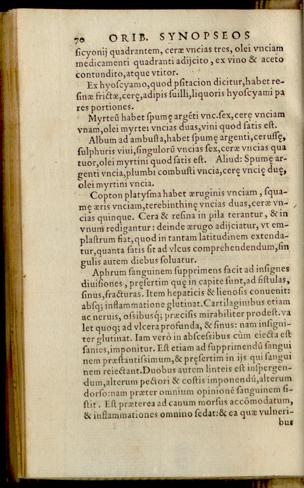 70 ORIB. SYNOPSEOS
sicyonij quadrantem, ceræ vncias tres, olei vnciam
medicamenti quadranti adijcito, ex vino & aceto
contundito, atque vtitor.
Ex hyoscyamo, quod psitacion dicitur, habet re-
sinæ frictæ, cerę, adipis suilli, liquoris hyoscyami pa
res portiones.
Myrteū habet spumę argēti vnc. sex, cerę vnciam
vnam, olei myrtei vncias duas, vini quod satis est.
Album ad ambusta, habet spumę argenti, cerussę,
sulphuris viui, singulorū vncias sex, ceræ vncias qua
tuor, olei myrtini quod satis est. Aliud: Spumę ar-
genti vncia, plumbi combusti vncia, cerę vncię duę,
olei myrtini vncia.
Copton platysma habet æruginis vnciam, squa-
mę æris vnciam, terebinthinę vncias duas, ceræ vn-
cias quinque. Cera & resina in pila terantur, & in
vnum redigantur: deinde ærugo adijciatur, vt em-
plastrum fiat, quod in tantam latitudinem extenda-
tur, quanta satis sit ad vlcus comprehendendum, sin
gulis autem diebus soluatur.
Aphrum sanguinem supprimens facit ad insignes
diuisiones, pręsertim quę in capite sunt, ad fistulas,
sinus, fracturas. Item hepaticis & lienosis conuenit:
absq; inflammatione glutinat. Cartilaginibus etiam
ac neruis, ossibusq; præcisis mirabiliter prodest. va
let quoq; ad vlcera profunda, & sinus: nam insigni-
ter glutinat. Iam verò in abscessibus cùm eiecta est
sanies, imponitur. Est etiam ad supprimendū sangui
nem præstantissimum, & pręsertim in ijs qui sangui
nem reiectant. Duobus autem linteis est inspergen-
dum, alterum pectori & costis imponendū, alterum
dorso: nam præter omnium opinionē sanguinem si-
stit. Est præterea ad canum morsus accōmodatum,
& inflammationes omnino sedat: & ea quæ vulneri-
bus